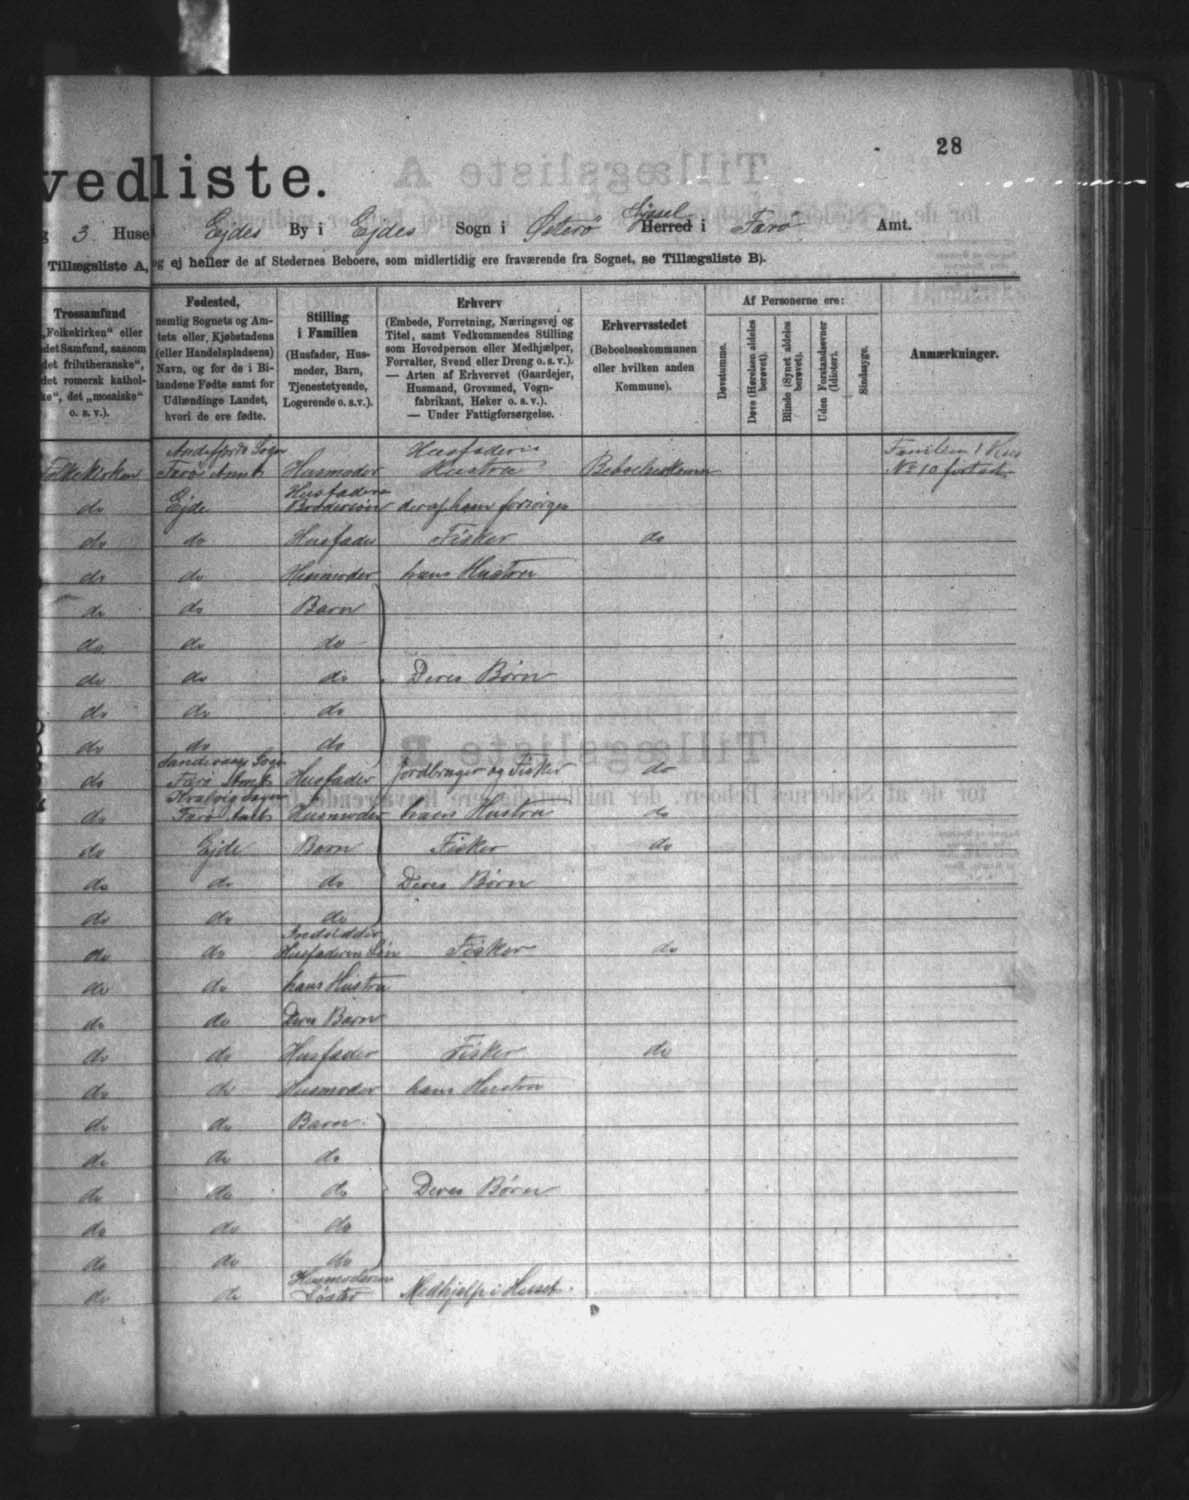 28
vedliste.
3 Huse Ejdes By i Ejdes Sogn i Østerø Syssel Herred i Færø Amt.
Tillægsliste A, og ej heller de af Stedernes Beboere, som midlertidig ere fraværende fra Sognet, se Tillægsliste B).
Trossamfund
„Folkekirken" eller
det Samfund, saasom
det frilutheranske",
det romersk kathol-
ke", det „mosaiske"
o. s. v.).
Fødested,
nemlig Sognets og Am-
tets eller, Kjøbstadens
(eller Handelspladsens)
Navn, og for de i Bi-
landene Fødte samt for
Udlændinge Landet,
hvori de ere fødte.
Stilling
i Familien
(Husfader, Hus-
moder, Barn,
Tjenestetyende,
Logerende o. s. v.).
Erhverv
(Embede, Forretning, Næringsvej og
Titel, samt Vedkommendes Stilling
som Hovedperson eller Medhjælper,
Forvalter, Svend eller Dreng o. s. v.).
— Arten af Erhvervet (Gaardejer,
Husmand, Grovsmed, Vogn-
fabrikant, Høker o. s. v.).
— Under Fattigforsørgelse.
Erhvervsstedet
(Beboelseskommunen
eller hvilken anden
Kommune).
Af Personerne ere:
Døvstumme.
Døve (Hørelsen aldeles berøvet).
Blinde (Synet aldeles berøvet).
Uden Forstandsevner (Idioter).
Sindssyge.
Anmærkninger.
Folkekirken Sogn Færø Amt Husmoder Husfaderens Hustru Familien i Hus No 10 fortsat
do Ejde Husfaderens Brodersøn der af ham forsørges
do do Husfader Fisker do
do do Husmoder hans Hustru
do do Barn
do do do
do do do Deres Børn
do do do
do do do
do Sandevaags Sogn Færø Amt Husfader Jordbruger og Fisker do
do Sogn Færø Amt Husmoder hans Hustru do
do Ejde Barn Fisker do
do do do Deres Børn
do do do
do do Husfaderens Søn Fisker do
do do hans Hustru
do do Deres Barn
do do Husfader Fisker do
do do Husmoder hans Hustru
do do Barn
do do do
do do do Deres Børn
do do do
do do do
do do Husmoderens Søster Medhjælp i Huset.